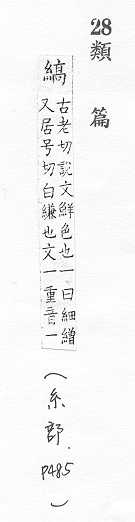 28
類篇
縞
古老切說文鮮色也一曰細繒
又居号切白縑也文一重音一
(糸部.
P485)